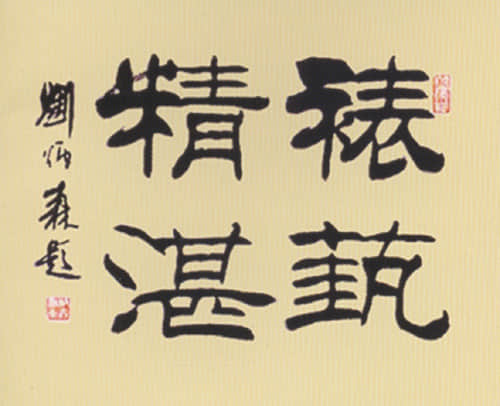 裱藝
精湛
劉炳森題